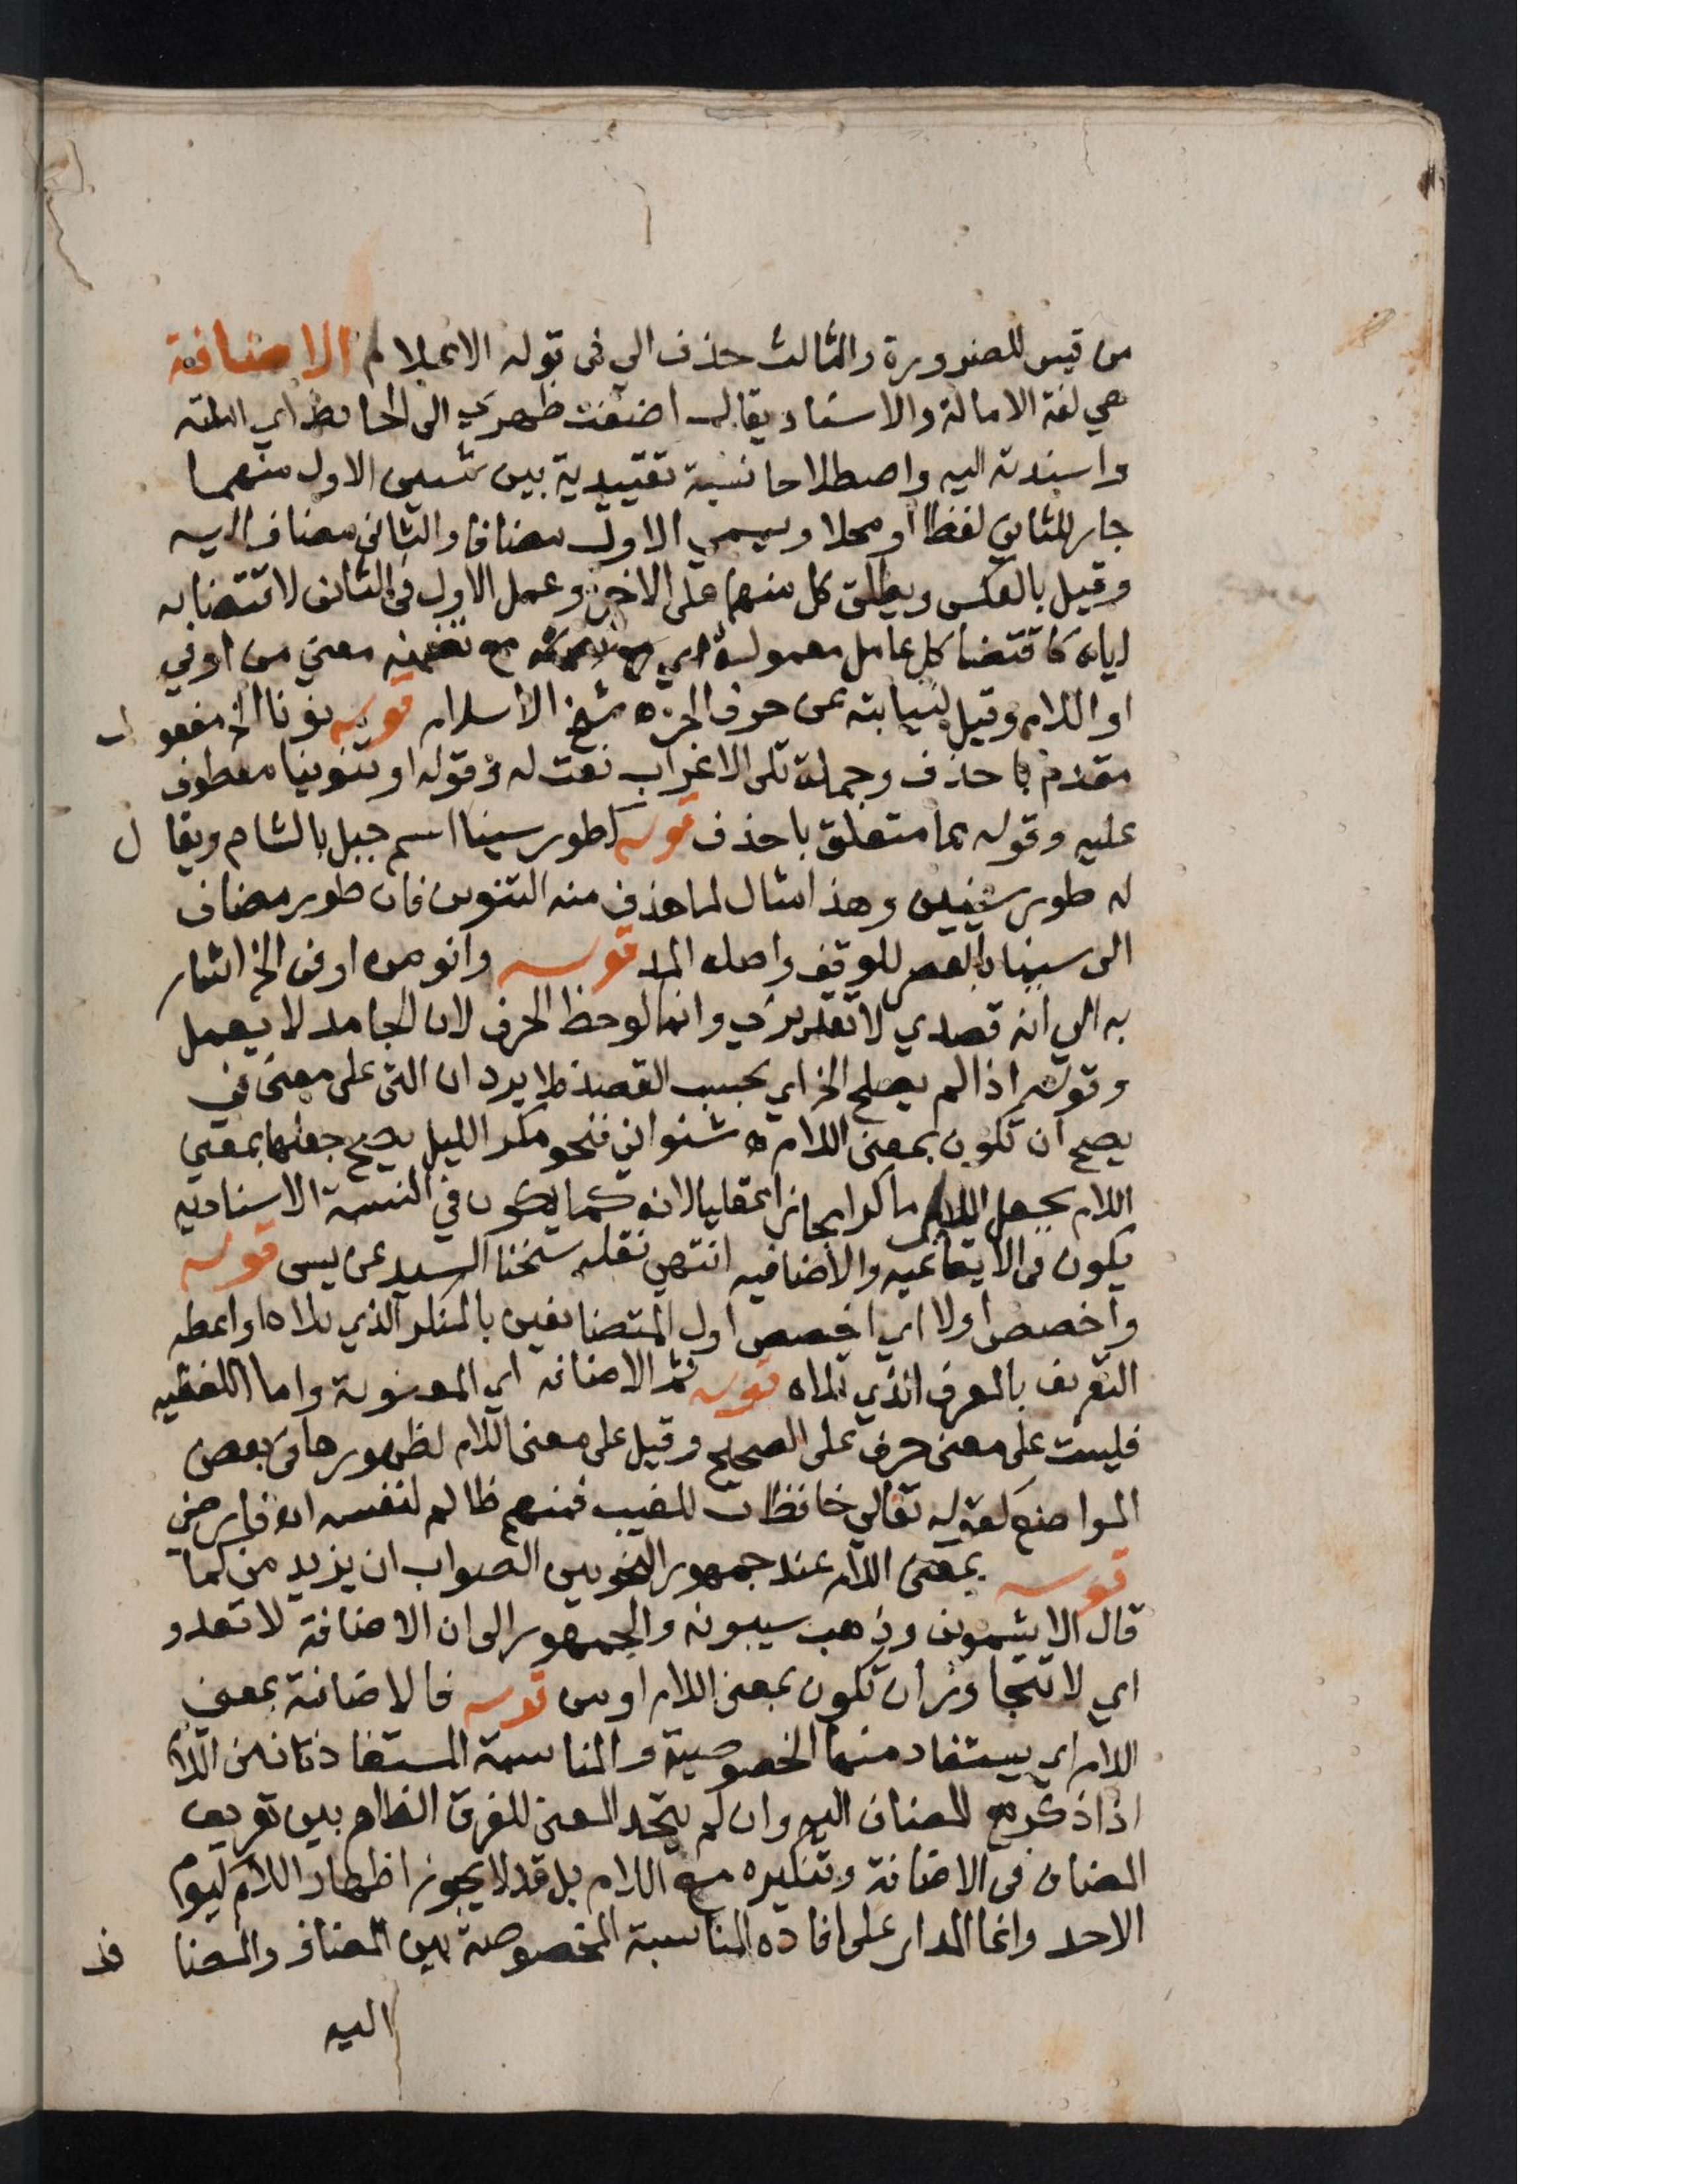 من قيس للضرورة والثالث حذف الى فى قوله الاعلام الاضافة
هي لغة الامالة والاسناد يقال اضفت ظهري الى الحائط اي املته
واسندته اليه واصطلاحا نسبة تقييدية بين شيين الاول منهما
جار للثاني لفظا او محلا ويسمي الاول مضافا والثاني مضاف اليه
وقيل بالعكس ويطلق كل منهما على الاخر وعمل الاول في الثانى لاقتضايه
اياه كاقتضا كل عامل معموله اي مع تضمنه معني من اوفي
او اللام وقيل لنيابته عن حرف الجر ه شيخ الاسلام قوله نونا الخ مفعول
مقدم باحذف وجملة تلى الاعراب نعت له وقوله او تنوينا معطوف
عليه وقوله مما متعلق باحذف قوله كطور سينا اسم جبل بالشام ويقال
له طور سينين وهذا مثال لما حذف منه التنوين فان طور مضاف
الى سينا بالقصر للوقف واصله المد قوله وانو من اوفى الخ اشار
به الى انه قصدي لا تقديري وانما لوحظ الحرف لان الجامد لا يعمل
وقوله اذا لم يصلح الخ اي بحسب القصد فلا يرد ان التى على معنى في
يصح ان تكون بمعنى اللام ه شنواني فنحو مكر الليل يصح جعلها بمعني
اللام بجعل الليل ماكرا مجازا عقليا لانه كما يكون في النسبة الاسنادية
يكون فى الايقاعيه والاضافيه انتهي نقله شيخنا السيد عن يسى قوله
واخصص اولا اي اخصص اول المتضايفين بالمنكر الذي تلاه او اعطه
التعريف بالمعرف الذي تلاه قوله ثم الاضافه اي المعنوية واما اللفظيه
فليست على معنى حرف على الصحيح وقيل على معنى اللام لظهورها فى بعض
المواضع كقوله تعالي حافظات للغيب فمنهم ظالم لنفسه انه فارضي
قوله بمعنى اللام عند جمهور النحويين الصواب ان يزيد من لما
قال الاشمونى وذهب سيبويه والجمهور الى ان الاضافة لا تعدو
اي لا تتجاوز ان تكون بمعنى اللام او من قوله فالاضافة بمعنى
اللام اي يستفاد منها الخصوصية والمناسبة المستفادتان من اللام
اذا ذكرت مع المضاف اليه وان لم يتحد المعنى للفرق الظاهر بين تعريف
المضاف فى الاضافة وتنكيره مع اللام بل قد لا يجوز اظهار اللام كيوم
الاحد وانما المدار على افاده المناسبة المخصوصة بين المضاف والمضاف
اليه